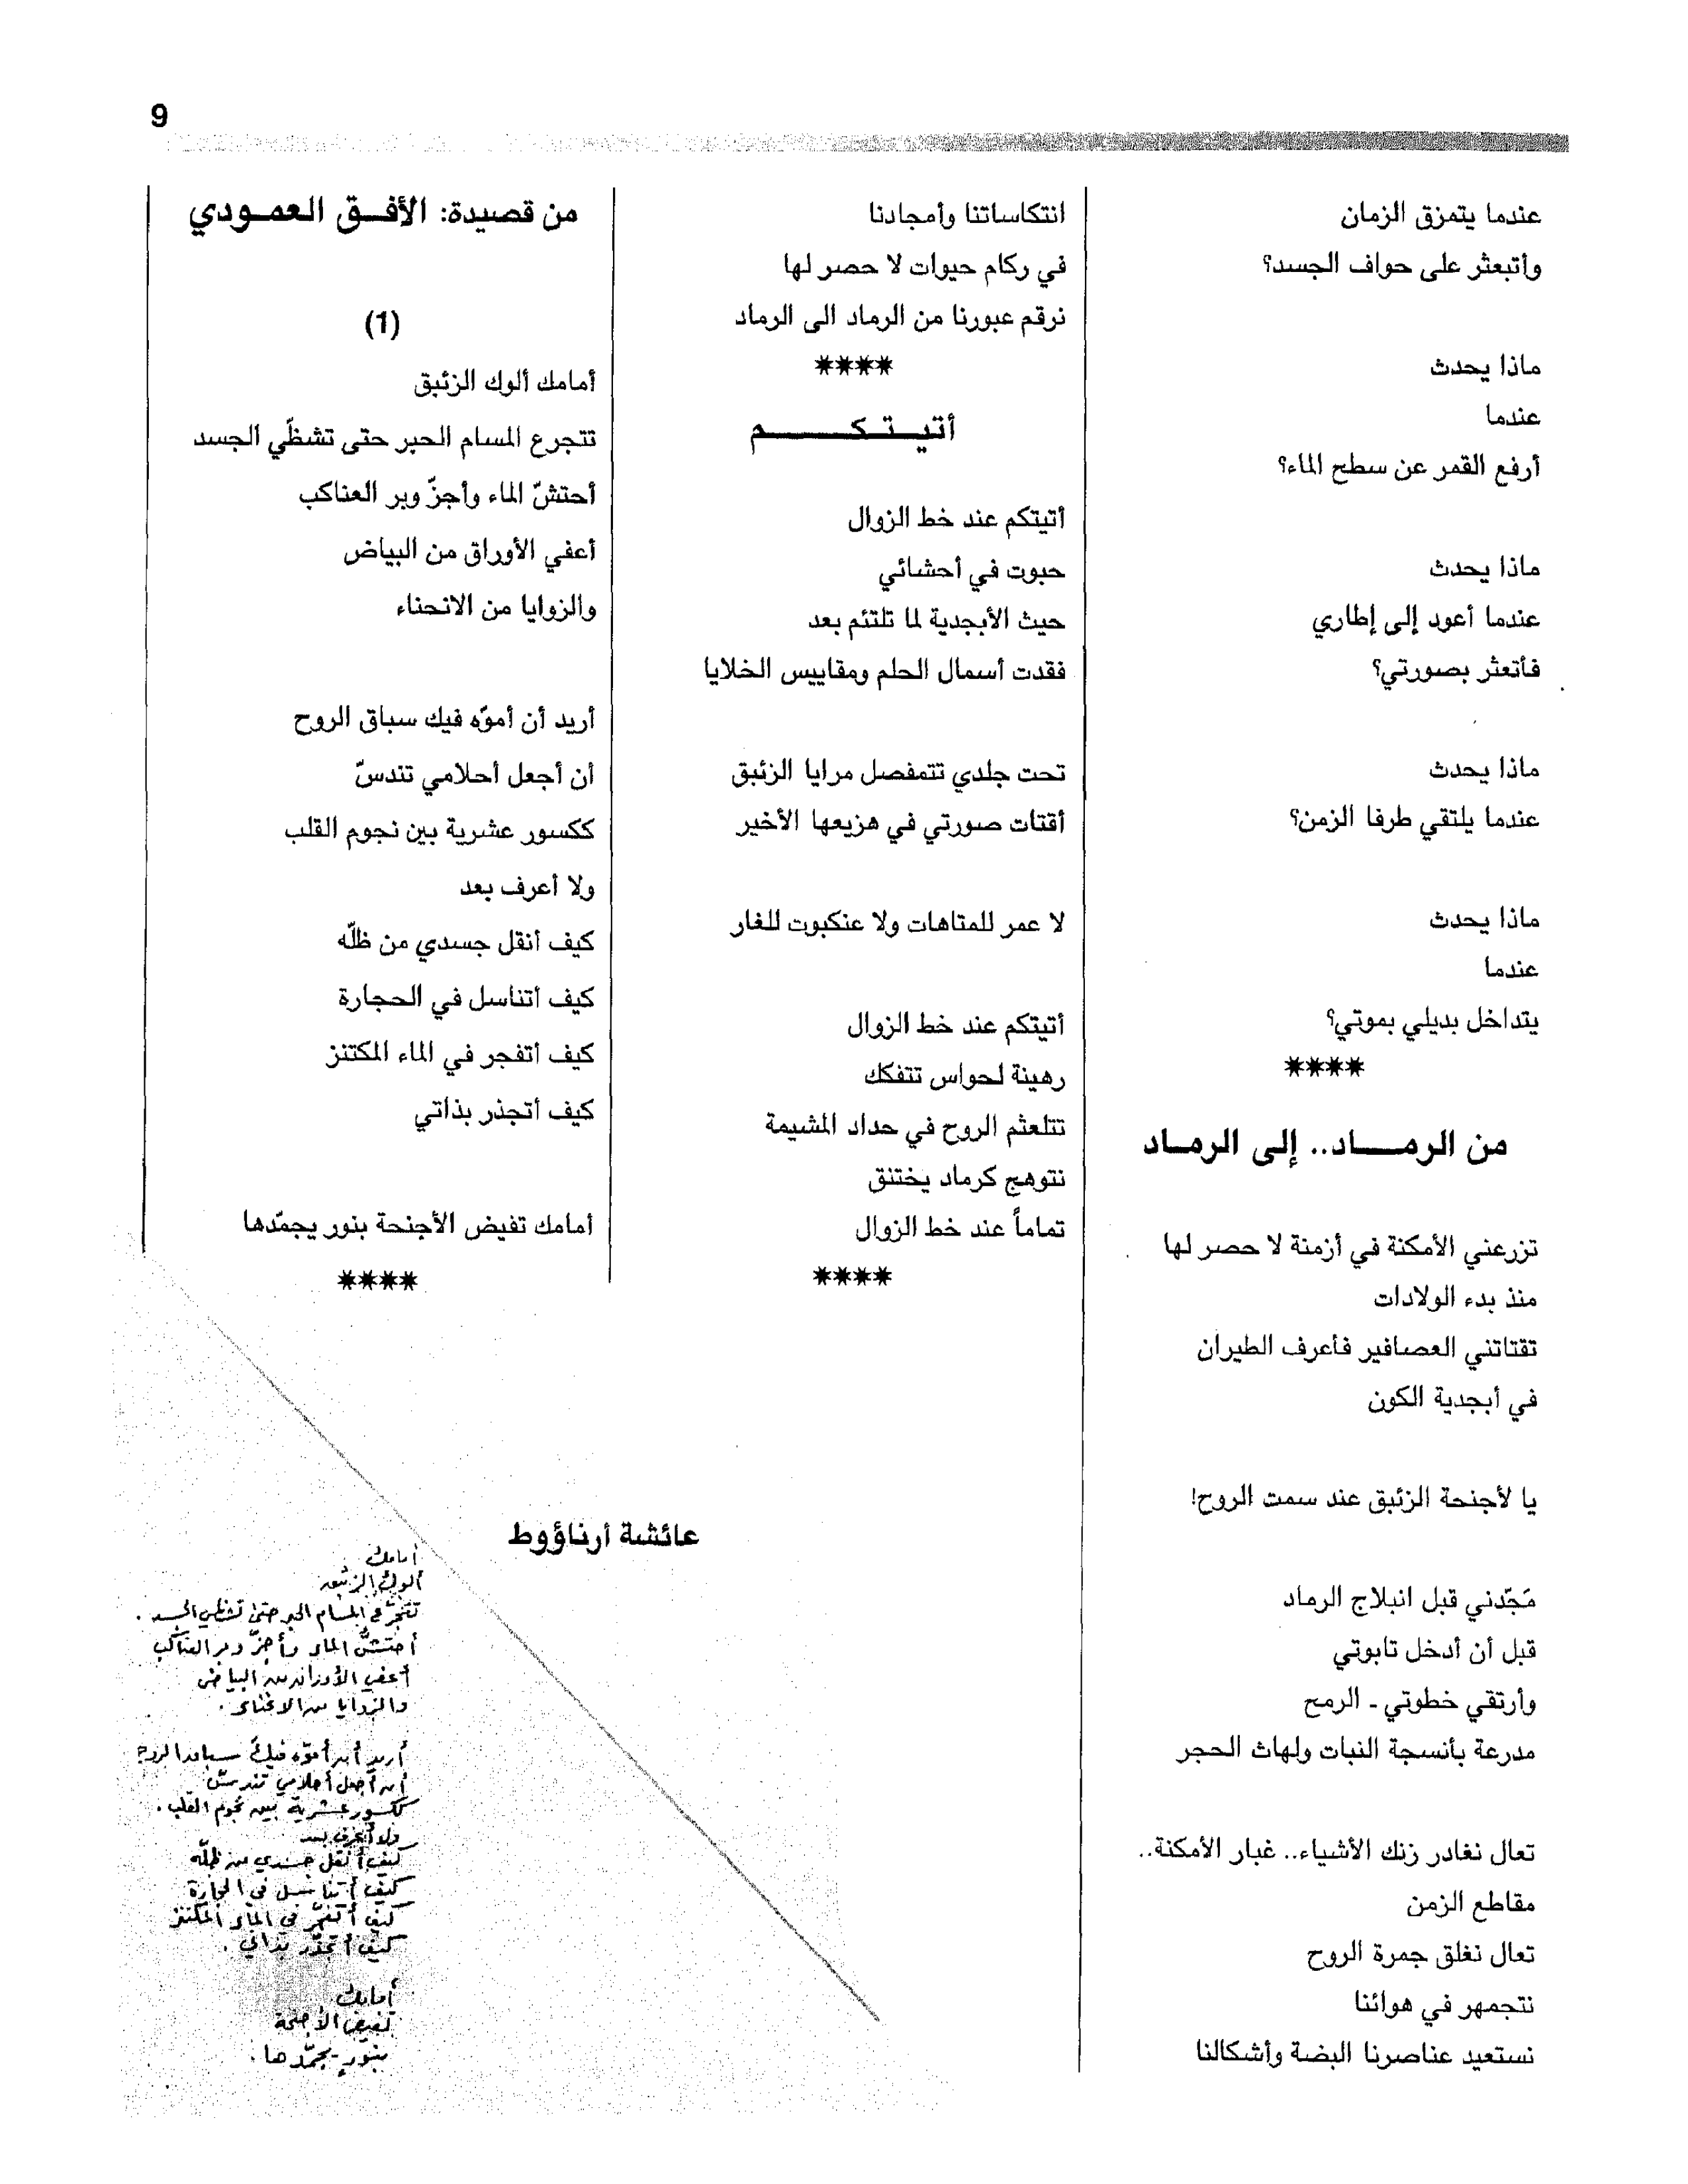 9
عندما يتمزق الزمان
وأتبعثر على حواف الجسد؟
ماذا يحدث
عندما
أرفع القمر عن سطح الماء؟
ماذا يحدث
عندما أعود إلى إطاري
فأتعثر بصورتي؟
ماذا يحدث
عندما يلتقي طرفا الزمن؟
ماذا يحدث
عندما
يتداخل بديلي بموتي؟
****
من الرمــــاد.. إلى الرمــاد
تزرعني الأمكنة في أزمنة لا حصر لها
منذ بدء الولادات
تقتاتني العصافير فأعرف الطيران
في أبجدية الكون
يا لأجنحة الزئبق عند سمت الروح!
مَجّدني قبل انبلاج الرماد
قبل أن أدخل تابوتي
وأرتقي خطوتي ـ الرمح
مدرعة بأنسجة النبات ولهاث الحجر
تعال نغادر زنك الأشياء.. غبار الأمكنة..
مقاطع الزمن
تعال نغلق جمرة الروح
نتجمهر في هوائنا
نستعيد عناصرنا البضة وأشكالنا
انتكاساتنا وأمجادنا
في ركام حيوات لا حصر لها
نرقم عبورنا من الرماد الى الرماد
****
أتيـــتــكــــــــم
أتيتكم عند خط الزوال
حبوت في أحشائي
حيث الأبجدية لما تلتئم بعد
فقدت أسمال الحلم ومقاييس الخلايا
تحت جلدي تتمفصل مرايا الزئبق
أقتات صورتي في هزيعها الأخير
لا عمر للمتاهات ولا عنكبوت للغار
أتيتكم عند خط الزوال
رهينة لحواس تتفكك
تتلعثم الروح في حداد المشيمة
نتوهج كرماد يختنق
تماماً عند خط الزوال
****
من قصيدة: الأفــق العمــودي
(1)
أمامك ألوك الزئبق
تتجرع المسام الحبر حتى تشظّي الجسد
أحتشّ الماء وأجزّ وبر العناكب
أعفي الأوراق من البياض
والزوايا من الانحناء
أريد أن أموّه فيك سباق الروح
أن أجعل أحلامي تندسّ
ككسور عشرية بين نجوم القلب
ولا أعرف بعد
كيف أنقل جسدي من ظلّه
كيف أتناسل في الحجارة
كيف أتفجر في الماء المكتنز
كيف أتجذر بذاتي
أمامك تفيض الأجنحة بنور يجمّدها
****
عائشة أرناؤوط
أمامك
ألوك الزئبق
تتجرّع المسام الحبر حتى تشظي الجسد.
أحتشّ الماء وأجزّ وبر العناكب
أعفي الأوراق من البياض
والزوايا من الانحناء.
أريد أن أموّه فيك سباق الروح
أن أجعل أحلامي تندسّ
ككسور عشرية بين نجوم القلب.
ولا أعرف بعد
كيف أنقل جسدي من ظلّه
كيف أتناسل في الحجارة
كيف أتفجّر في الماء المكتنز
كيف أتجذّر بذاتي.
أمامك
تفيض الأجنحة
بنورٍ يجمّدها.